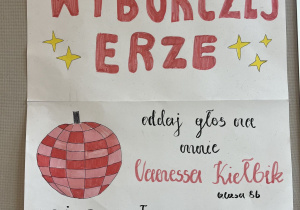 WYBORCZEJ
ERZE
oddaj głos na
nowe
Vanessa Kiełbik
klasa 8b